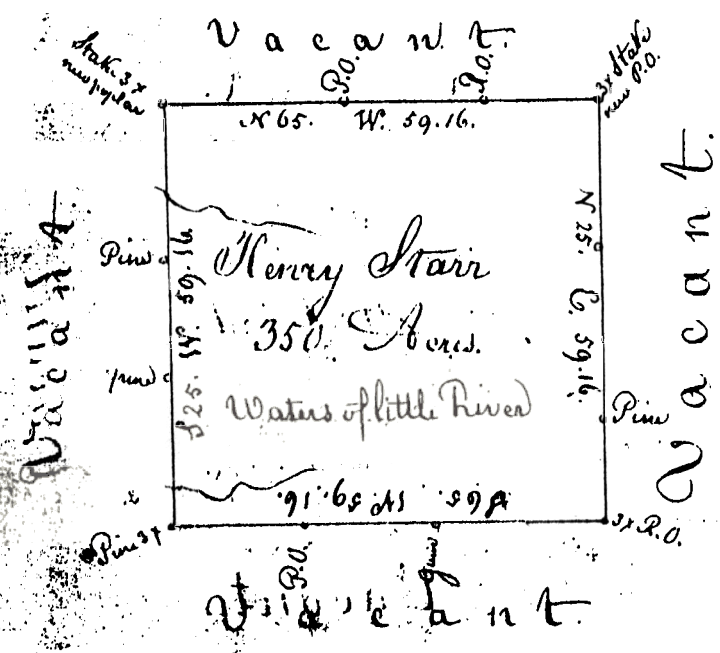 Vacant.
Stake 3x
new poplar
P.O.
P.O.
3x Stake
new P.O.
N 65. W. 59.16.
Vacant.
Pine
S 25. W. 59.16.
Henry Starr
350. Acres.
Waters of little River
N 25. E. 59.16.
Vacant.
pine
Pine
S 65. 59.16.
Pine 3x
P.O.
3x R.O.
Vacant.